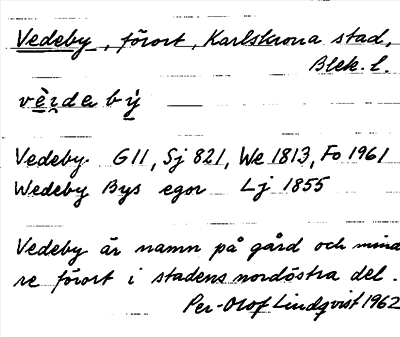 Vedeby, förort, Karlskrona stad,
Blek. l.
Vedeby G11, Sj 821, We 1813, Fo 1961
Wedeby Bys egor Lj 1855
Vedeby är namn på gård och mind
re förort i stadens nordöstra del.
Per-Olof Lindqvist 1962